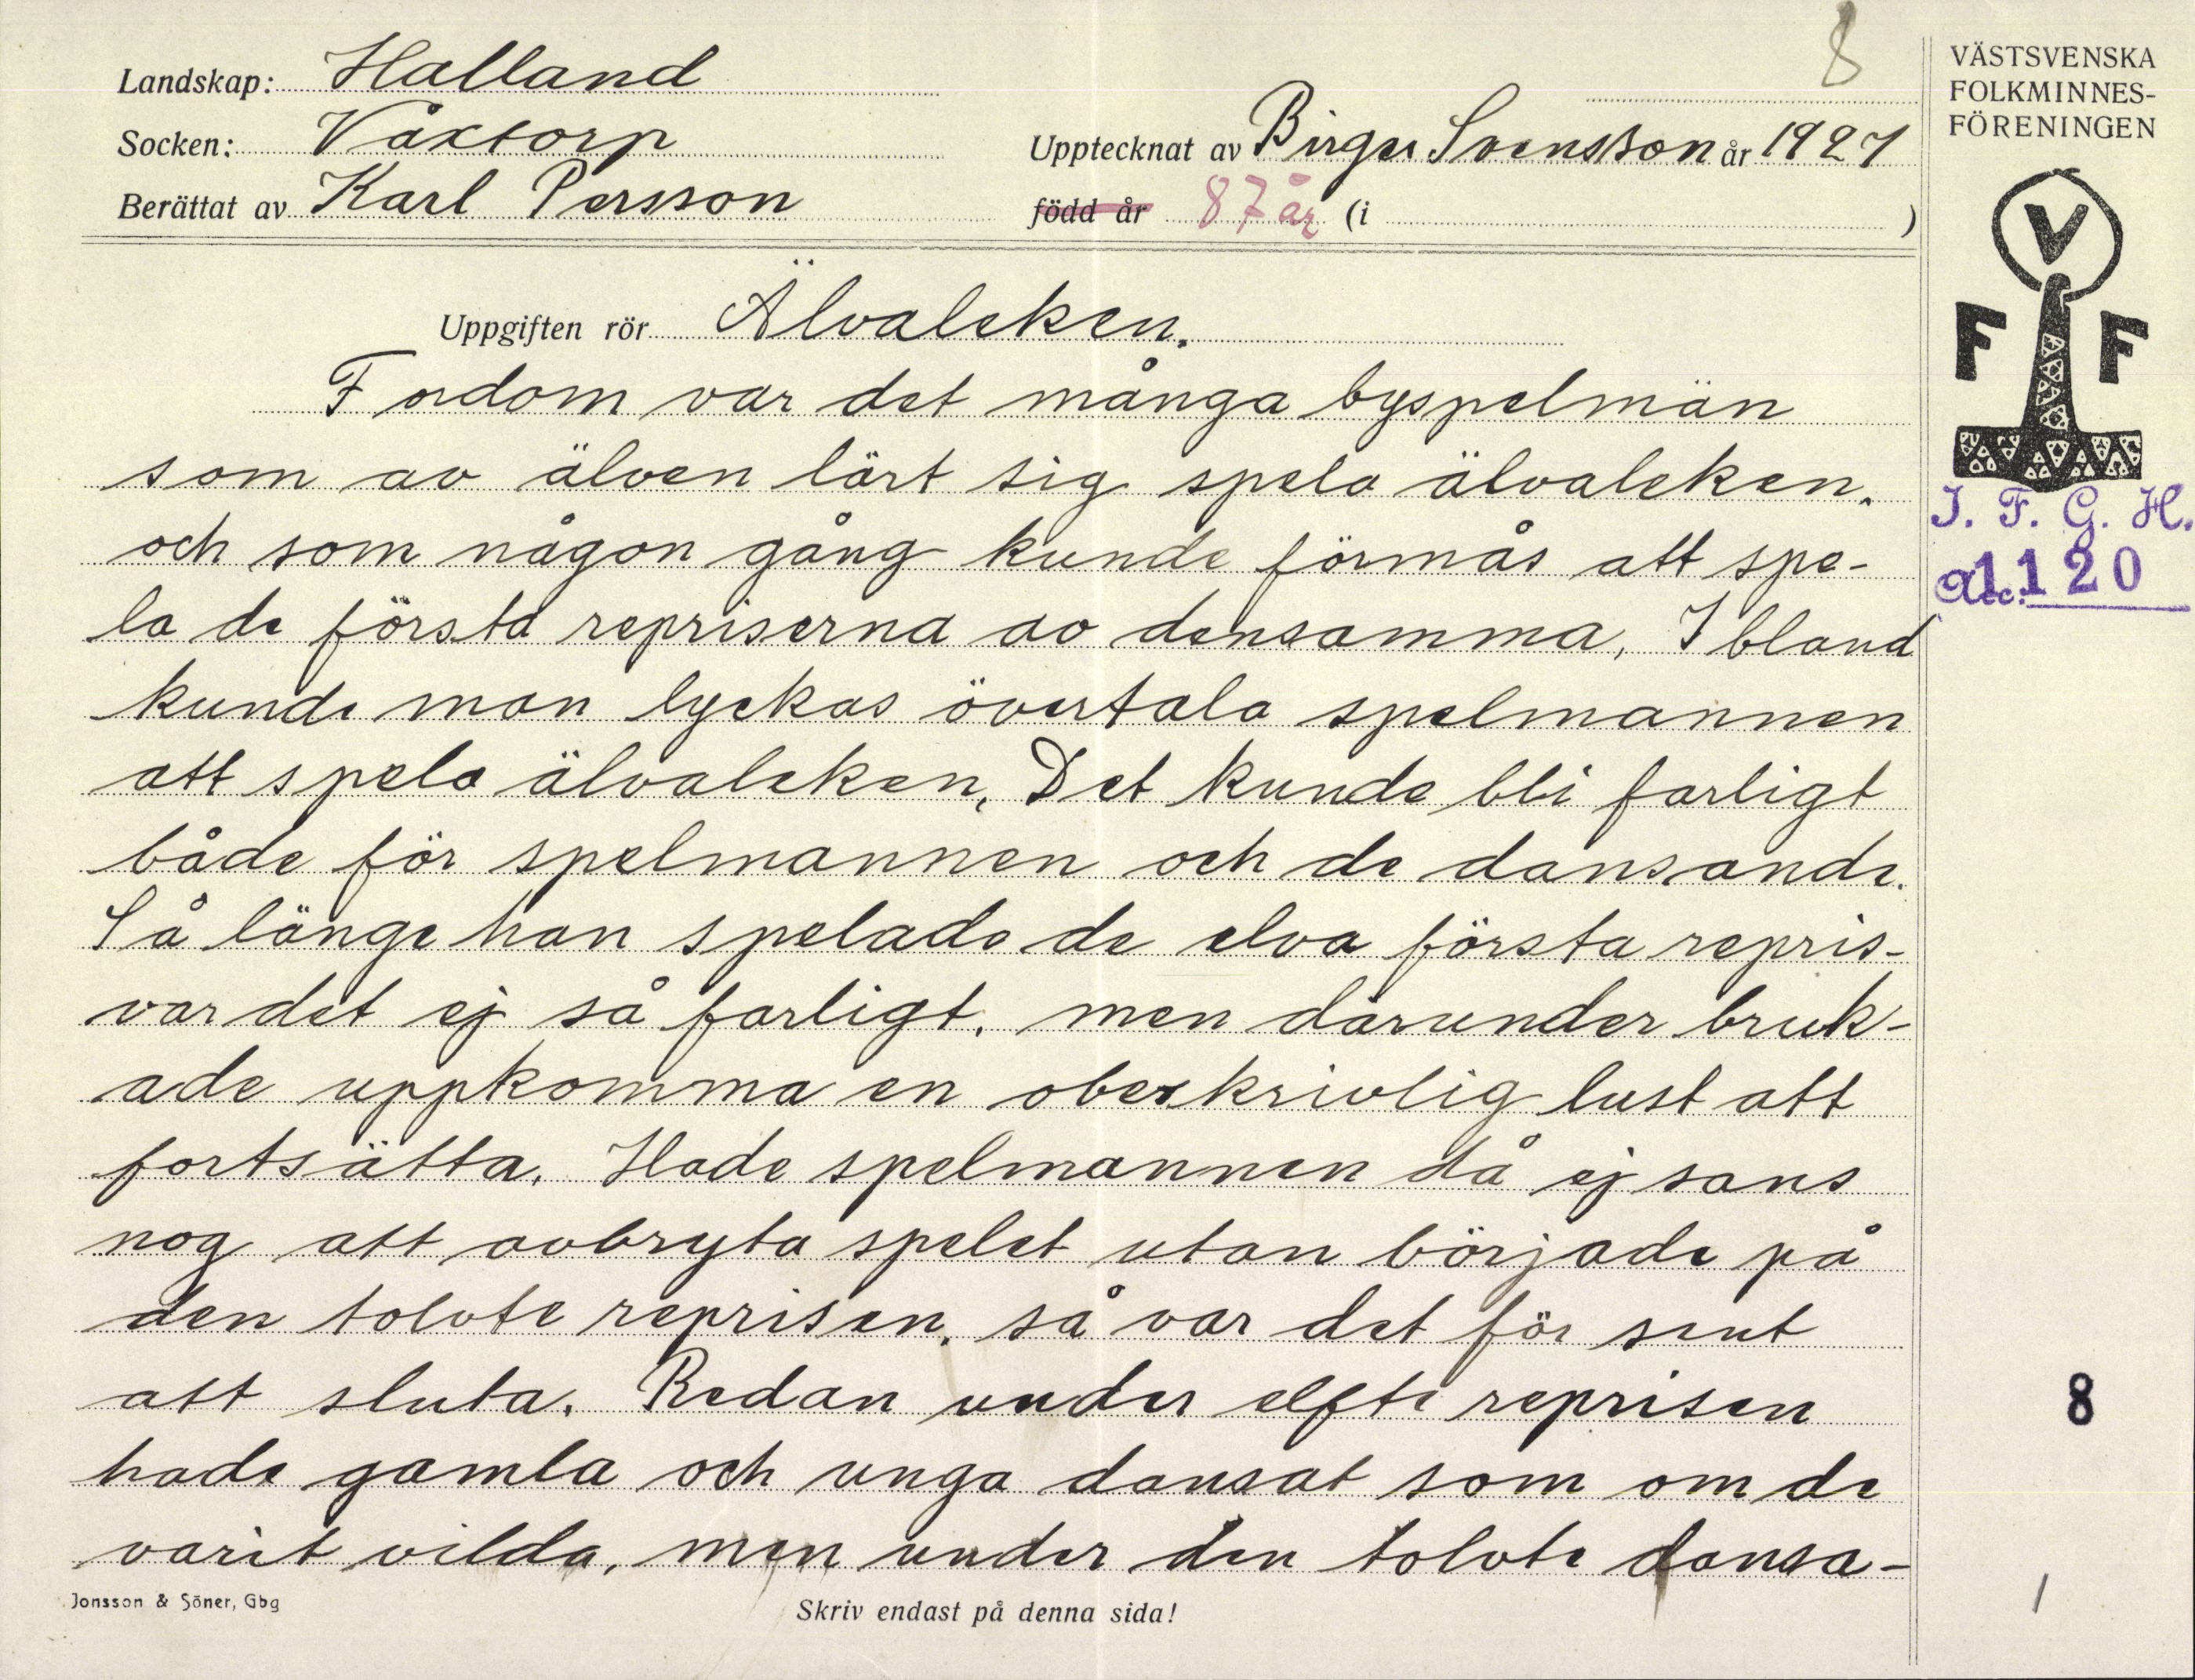 8
Landskap: Halland
Socken: Våxtorp
Berättat av Karl Persson
Upptecknat av Birger Svensson år 1927
född år 87 år (i )
VÄSTSVENSKA
FOLKMINNES-
FÖRENINGEN
V
F F
I. F. G. H.
Acc. 1120
Uppgiften rör Älvaleken.
Fordom var det många byspelmän
som av älven lärt sig spela älvaleken.
och som någon gång kunde förmås att spe-
la de första repriserna av densamma, Ibland
kunde man lyckas övertala spelmannen
att spela älvaleken, Det kunde bli farligt
både för spelmannen och de dansande.
Så länge han spelade de elva första repris-
var det ej så farligt. men därunder bruk-
ade uppkomma en obeskrivlig lust att
fortsätta. Hade spelmannen då ej sans
nog att avbryta spelet utan började på
den tolvte reprisen, så var det för sent
att sluta. Redan under elfte reprisen
hade gamla och unga dansat som om de
varit vilda, men under den tolvte dansa-
8
Jonsson & Söner, Gbg
Skriv endast på denna sida!
1